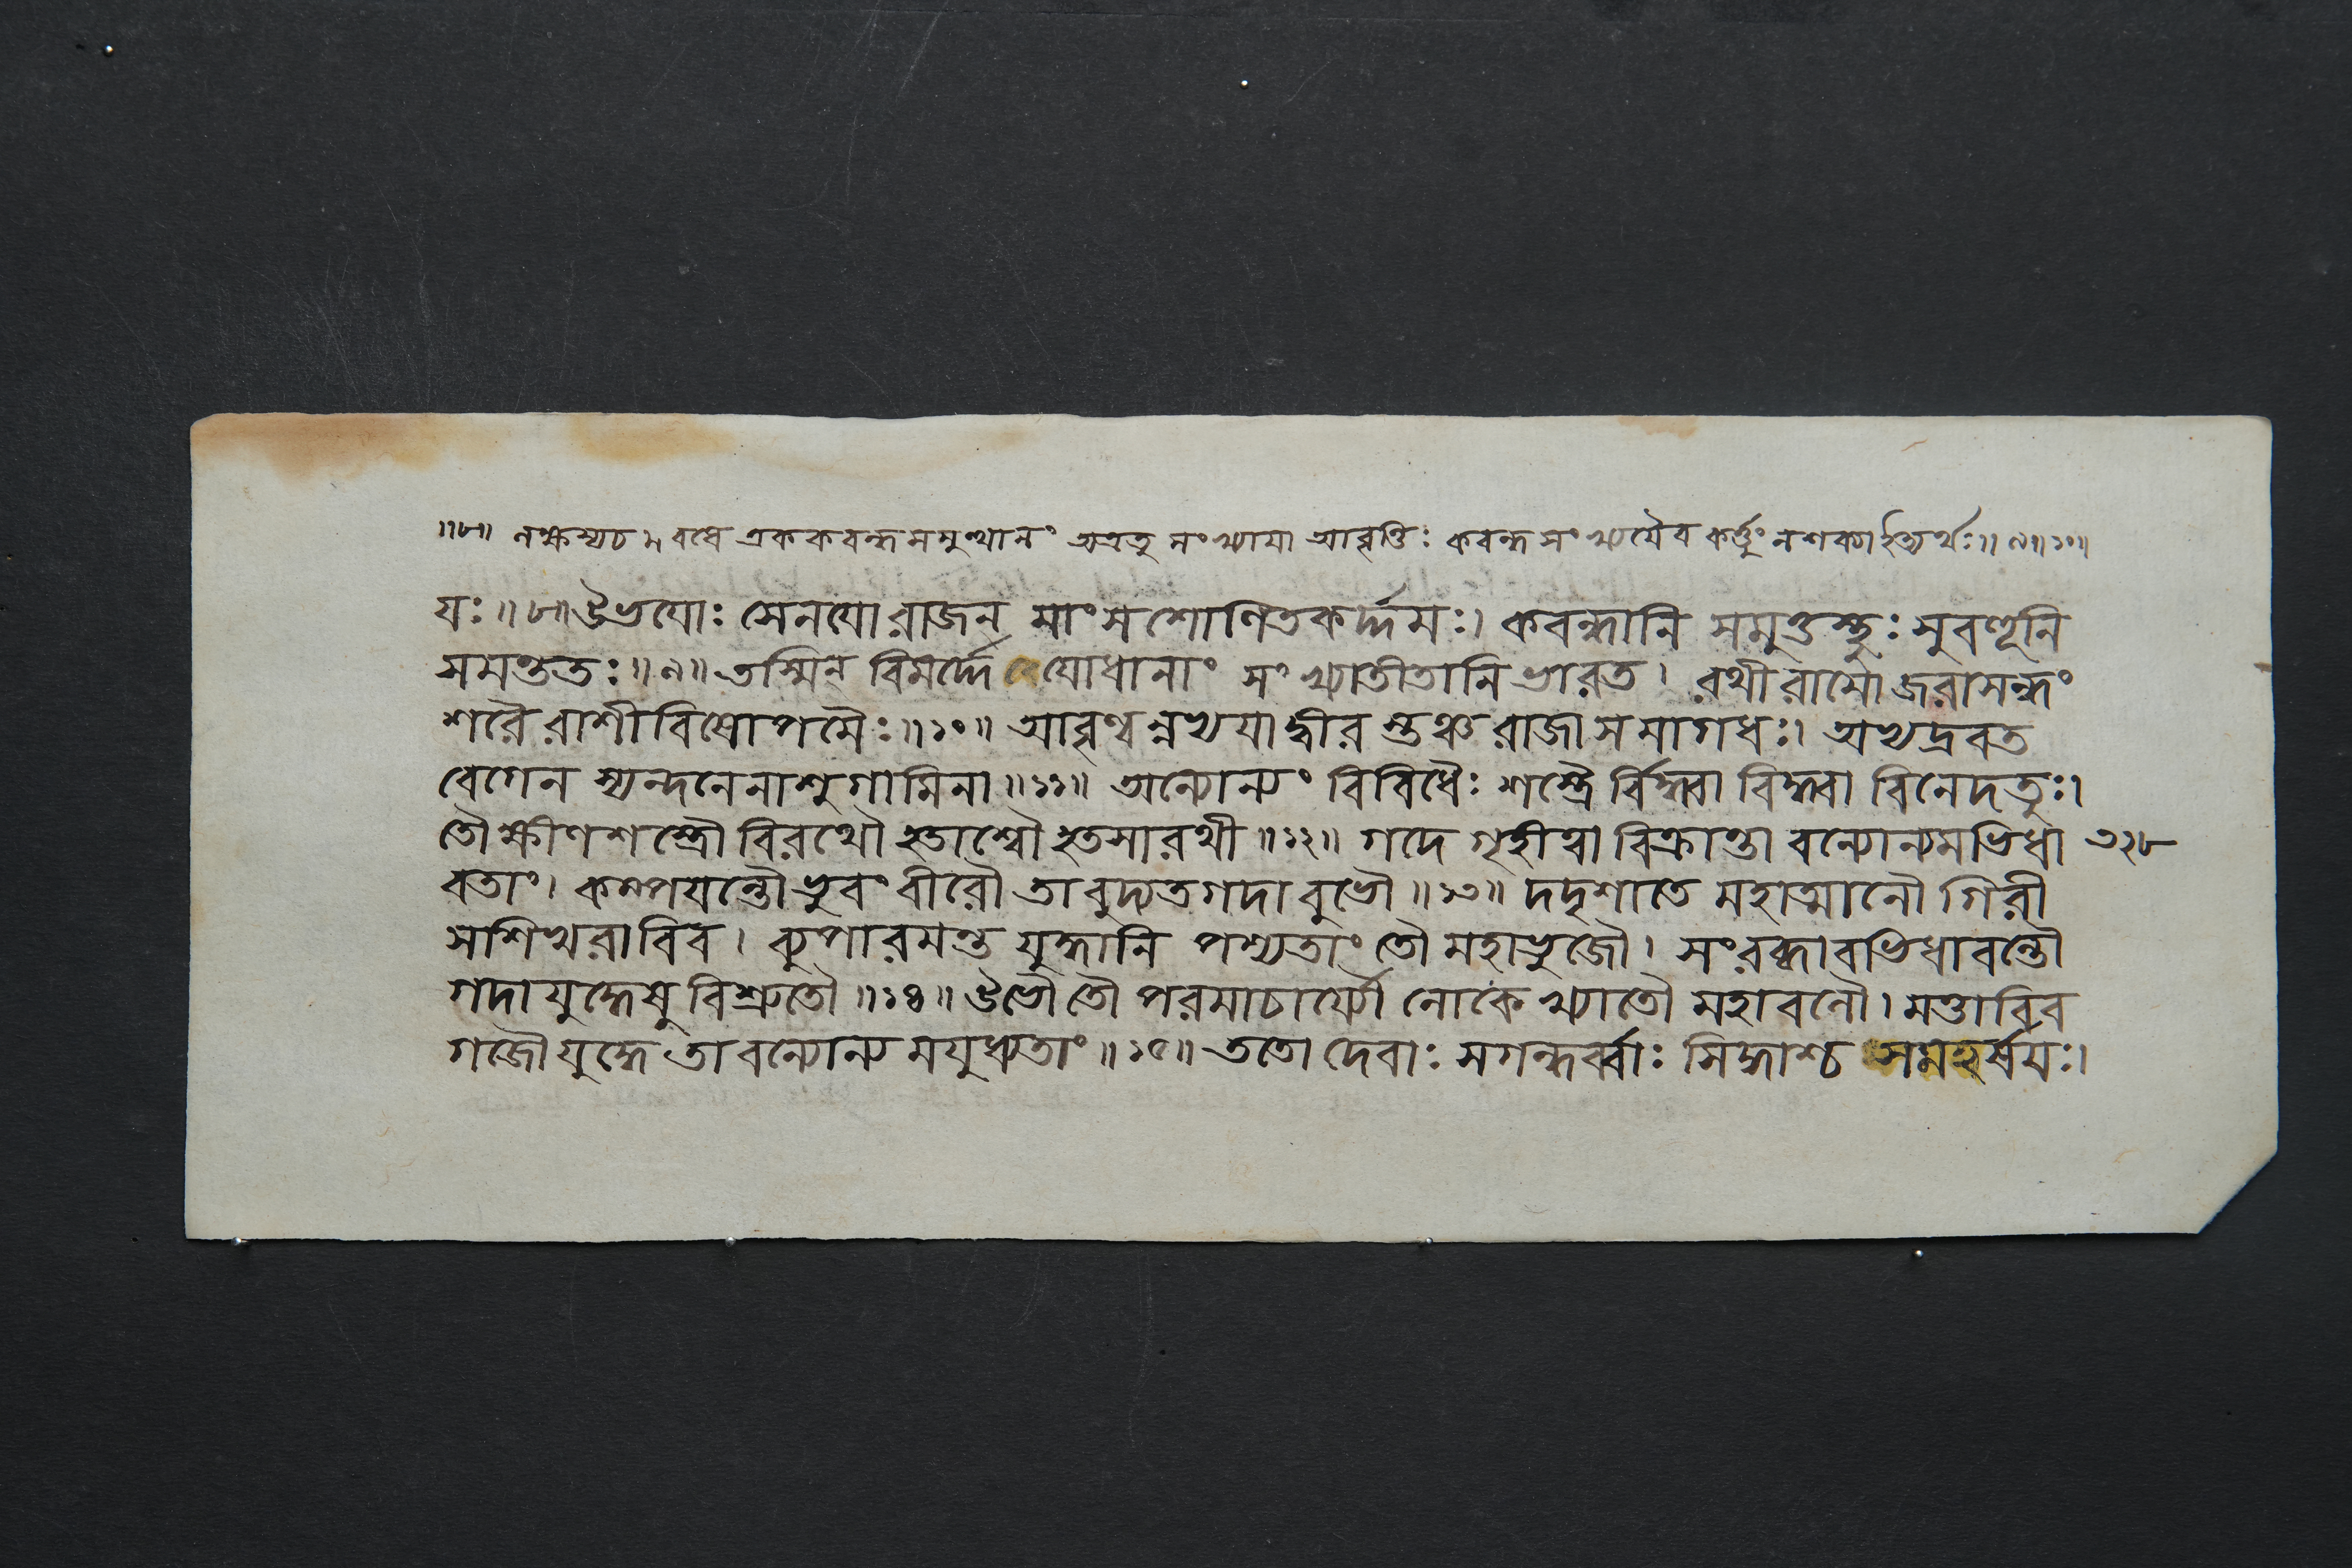 ॥৮॥ লক্ষস্যচ বধে এককবন্ধসমুত্থানং অত্রতু সংখ্যাযা আবৃত্তিঃ কবন্ধসংখ্যযৈব কর্ত্তুং নশক্যাইত্যর্থঃ॥৯॥১০॥
যঃ॥৮॥উভযোঃ সেনযোরাজন্ মাংসশোণিতকর্দ্দমঃ। কবন্ধানি সমুত্তস্থুঃ সুবহূনি
সমন্ততঃ॥৯॥তস্মিন্ বিমর্দ্দে যোধানাং সংখ্যাতীতানি ভারত। রথীরামোজরাসন্ধং
শরৈরাশীবিষোপমৈঃ॥১০॥ আবৃণ্বন্নভ্যযাদ্বীরস্তঞ্চরাজা সমাগধঃ। অভ্যদ্রবত
বেগেন স্যন্দনেনাশুগামিনা॥১১॥ অন্যোন্যং বিবিধৈঃ শস্ত্রৈর্বিদ্ধ্বা বিদ্ধ্বা বিনেদতুঃ।
তৌক্ষীণশস্ত্রৌ বিরথৌ হতাশ্বৌ হতসারথী॥১২॥ গদে গৃহীত্বা বিক্রান্তা বন্যোন্যমভিধা ৩২৮
বতাং। কম্পযন্তৌভুবং বীরৌ তাবুদ্যতগদাবুভৌ॥১৩॥ দদৃশাতে মহাত্মানৌ গিরী
সশিখরাবিব। ব্যুপারমন্ত যুদ্ধানি পশ্যতাং তৌ মহাভুজৌ। সংরব্ধাবভিধাবন্তৌ
গদাযুদ্ধেষু বিশ্রুতৌ॥১৪॥উভৌ তৌ পরমাচার্য্যৌ লোকে খ্যাতৌ মহাবলৌ। মত্তাবিব
গজৌযুদ্ধে তাবন্যোন্যমযুধ্যতাং॥১৫॥ ততো দেবাঃ সগন্ধর্ব্বাঃ সিদ্ধাশ্চ সমহর্ষযঃ।